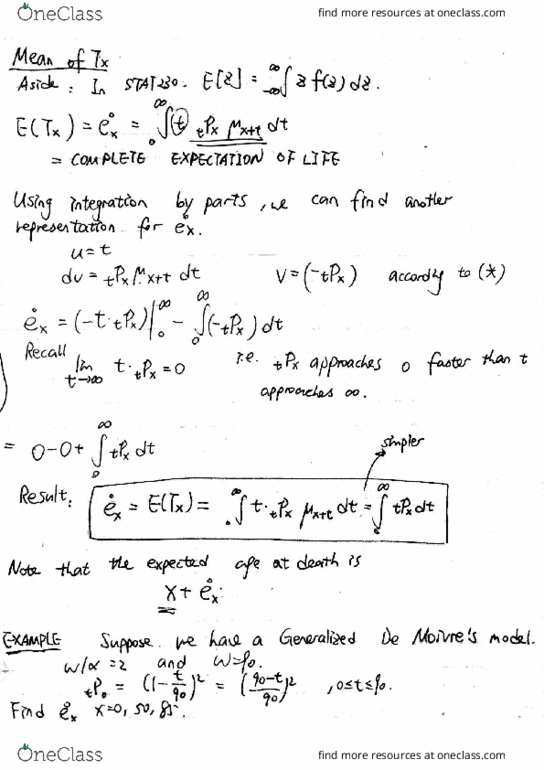 OneClass
find more resources at oneclass.com
Mean of Tx
Aside: In STAT230. E[z] = ∫_{-∞}^{∞} z f(z) dz.
E(Tx) = e̊x = ∫_0^∞ (t) tPx μx+t dt
= COMPLETE EXPECTATION OF LIFE
Using integration by parts, we can find another
representation for e̊x.
u = t
dv = tPx μx+t dt V = (-tPx) accordly to (*)
e̊x = (-t · tPx)|_0^∞ - ∫_0^∞ (-tPx) dt
Recall lim_{t→∞} t · tPx = 0 i.e. tPx approaches 0 faster than t
approaches ∞.
= 0-0+ ∫_0^∞ tPx dt
simpler
Result: e̊x = E(Tx) = ∫_0^∞ t · tPx μx+t dt = ∫_0^∞ tPx dt
Note that the expected age at death is
x + e̊x.
EXAMPLE Suppose we have a Generalized De Moivre's model.
w/α = 2 and W=90.
tP0 = (1 - t/90)^2 = ((90-t)/90)^2 , 0≤t≤90.
Find e̊x x=0, 50, 85.
OneClass
find more resources at oneclass.com